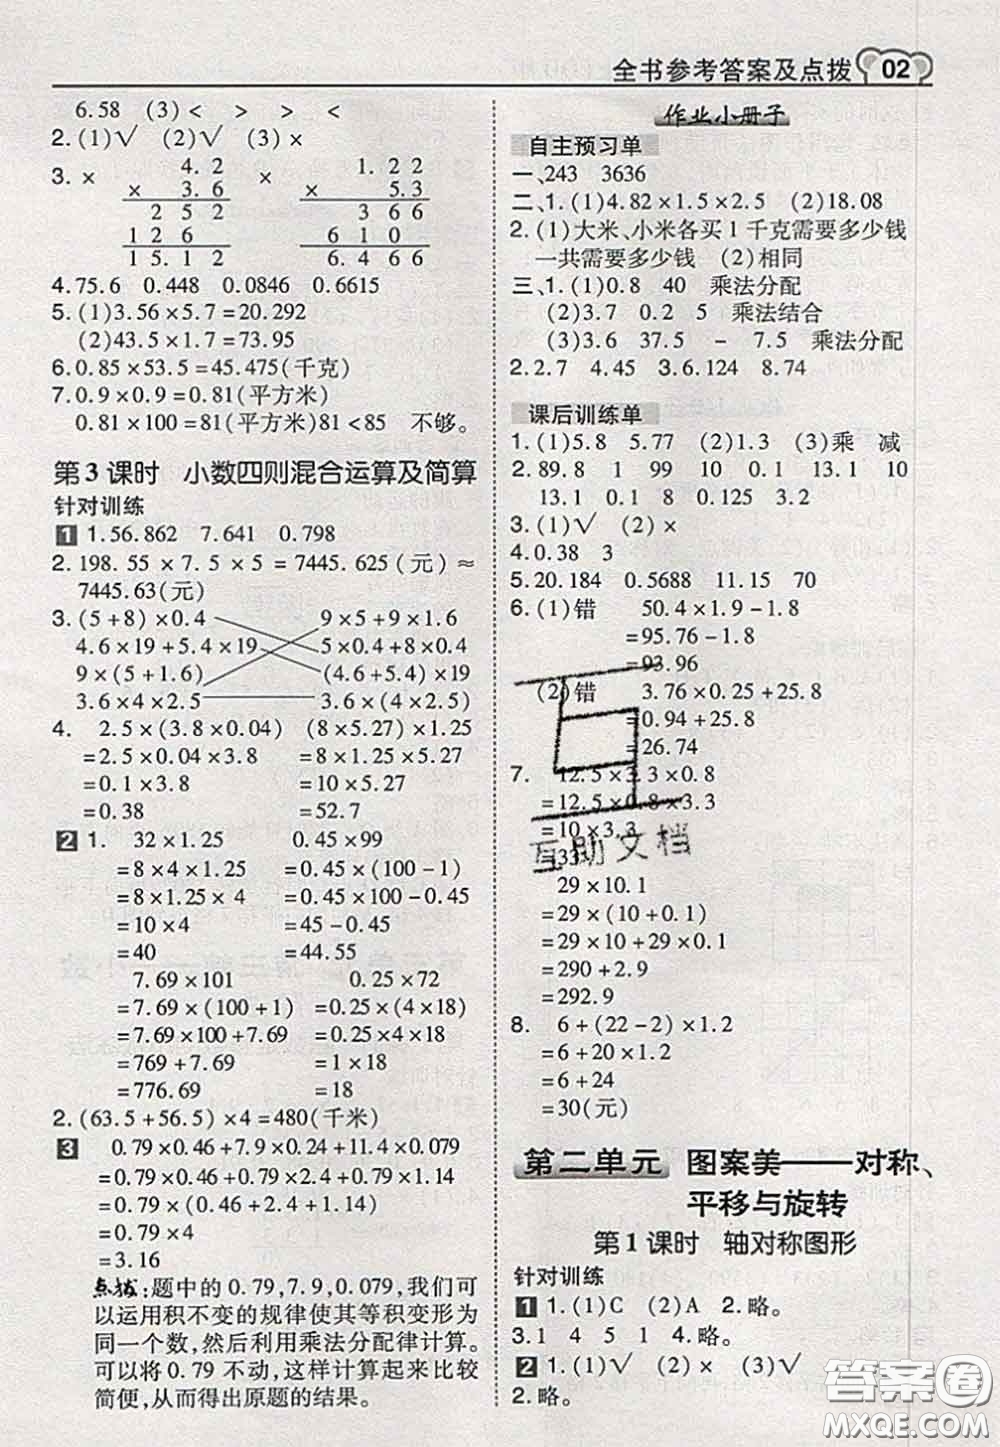 全书参考答案及点拨 02
6.58 (3)< > > <
2.(1)√ (2)√ (3)×
3. × 4.2 × 1.22
× 3.6 × 5.3
252 366
126 610
15.12 6.466
4.75.6 0.448 0.0846 0.6615
5.(1)3.56×5.7=20.292
(2)43.5×1.7=73.95
6.0.85×53.5=45.475(千克)
7.0.9×0.9=0.81(平方米)
0.81×100=81(平方米)81<85 不够。
第3课时 小数四则混合运算及简算
针对训练
1 1.56.862 7.641 0.798
2.198.55×7.5×5=7445.625(元)≈
7445.63(元)
3.(5+8)×0.4 9×5+9×1.6
4.6×19+5.4×19 5×0.4+8×0.4
9×(5+1.6) (4.6+5.4)×19
3.6×4×2.5 3.6×(4×2.5)
4. 2.5×(3.8×0.04) (8×5.27)×1.25
=2.5×0.04×3.8 =8×1.25×5.27
=0.1×3.8 =10×5.27
=0.38 =52.7
2 1. 32×1.25 0.45×99
=8×4×1.25 =0.45×(100-1)
=8×1.25×4 =0.45×100-0.45
=10×4 =45-0.45
=40 =44.55
7.69×101 0.25×72
=7.69×(100+1) =0.25×(4×18)
=7.69×100+7.69 =0.25×4×18
=769+7.69 =1×18
=776.69 =18
2.(63.5+56.5)×4=480(千米)
3 0.79×0.46+7.9×0.24+11.4×0.079
=0.79×0.46+0.79×2.4+1.14×0.79
=0.79×(0.46+2.4+1.14)
=0.79×4
=3.16
点拨:题中的0.79,7.9,0.079,我们可
以运用积不变的规律使其等积变形为
同一个数,然后利用乘法分配律计算。
可以将0.79不动,这样计算起来比较
简便,从而得出原题的结果。
作业小册子
自主预习单
一、243 3636
二、1.(1)4.82×1.5×2.5 (2)18.08
2.(1)大米、小米各买1千克需要多少钱
一共需要多少钱 (2)相同
三、1.(1)0.8 40 乘法分配
(2)3.7 0.2 5 乘法结合
(3)3.6 37.5 - 7.5 乘法分配
2.2.7 4.45 3.6.124 8.74
课后训练单
1.(1)5.8 5.77 (2)1.3 (3)乘 减
2.89.8 1 99 10 0.1 13.1 10
13.1 0.1 8 0.125 100
3.(1)√ (2)×
4.0.38 3
5.20.184 0.5688 11.15 70
6.(1)错 50.4×1.9-1.8
=95.76-1.8
=93.96
(2)错 3.76×0.25+25.8
=0.94+25.8
=26.74
7. 12.5×3.3×0.8
=12.5×0.8×3.3
=10×3.3
=33
29×10.1
=29×(10+0.1)
=29×10+29×0.1
=290+2.9
=292.9
8. 6+(22-2)×1.2
=6+20×1.2
=6+24
=30(元)
第二单元 图案美——对称、
平移与旋转
第1课时 轴对称图形
针对训练
1 1.(1)C (2)A 2.略。
3.1 4 5 1 4.略。
2 1.(1)√ (2)× (3)√
2.略。
互助文档
答案圈
MXQE.COM